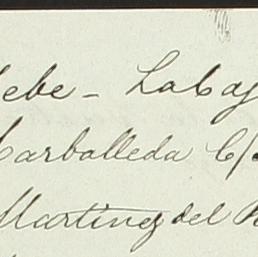 ebe - Laba
Carballeda C/
Martinez del